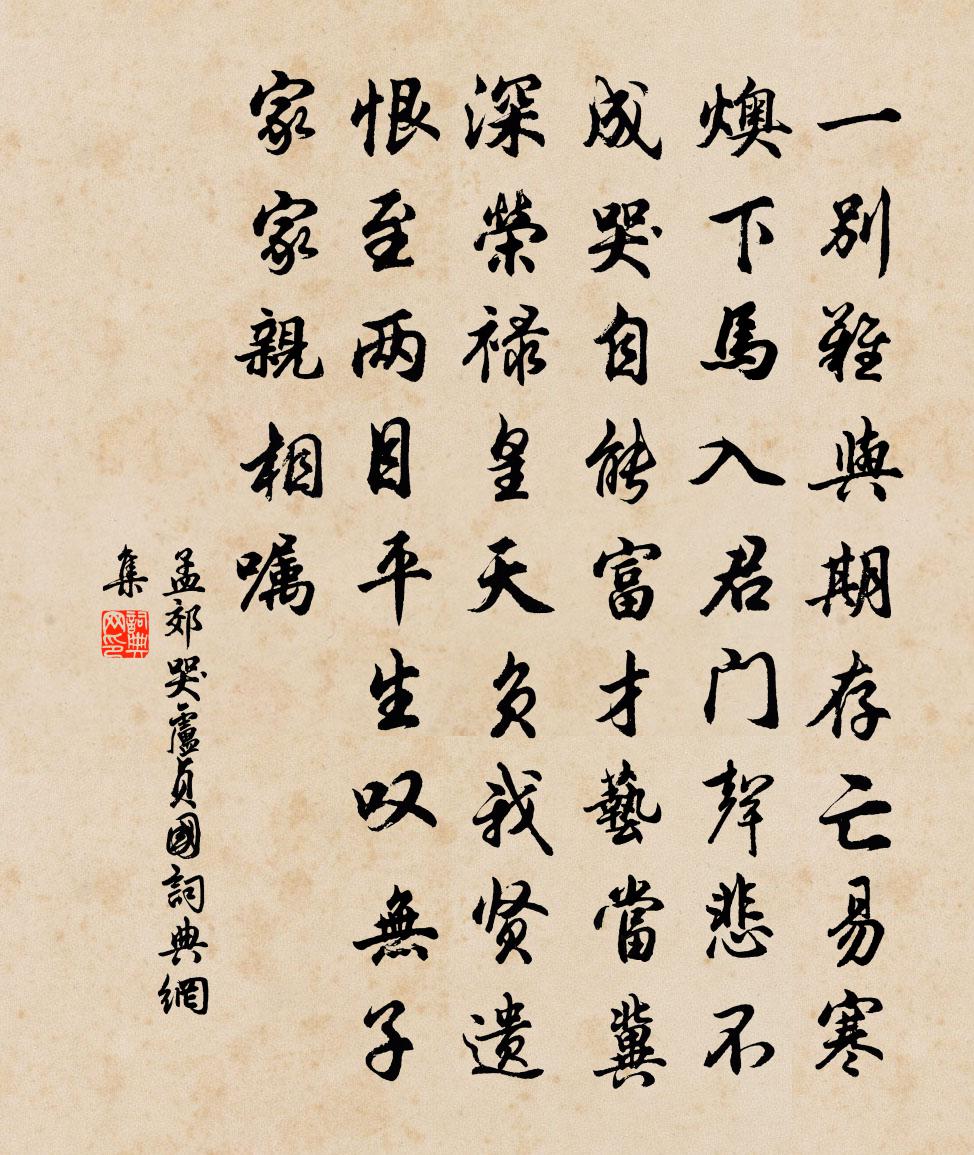 一别難與期存亡易寒
燠下馬入君门聲悲不
成哭自能富才藝當冀
深榮禄皇天负我贤遗
恨至两目平生叹無子
家家親相嘱
孟郊哭盧貞國詞典網
集
詞典网印